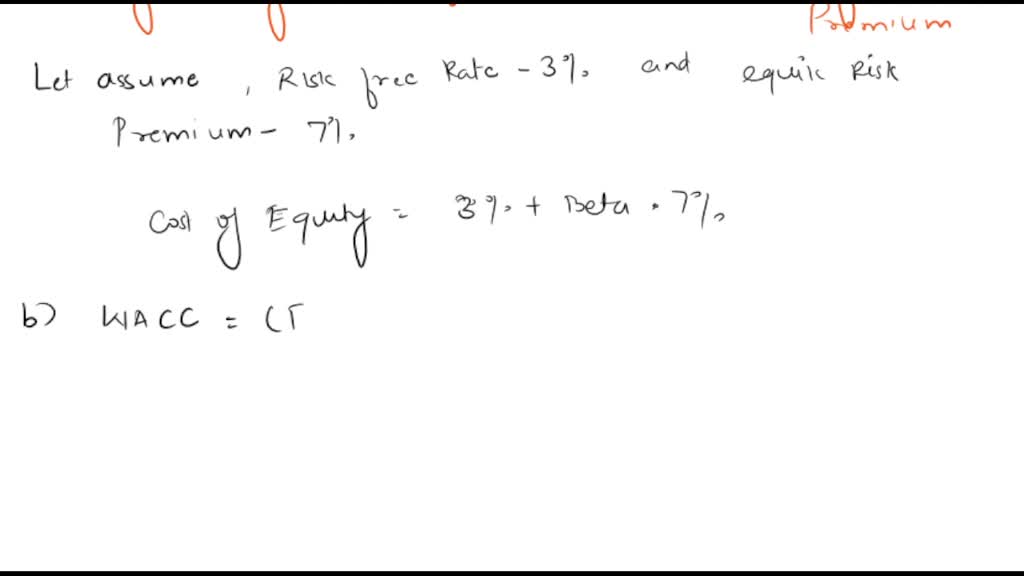 Premium
Let assume, Risk free Rate - 3% and equity Risk
Premium - 7%.
Cost of Equity = 3% + Beta . 7%
b) WACC = (